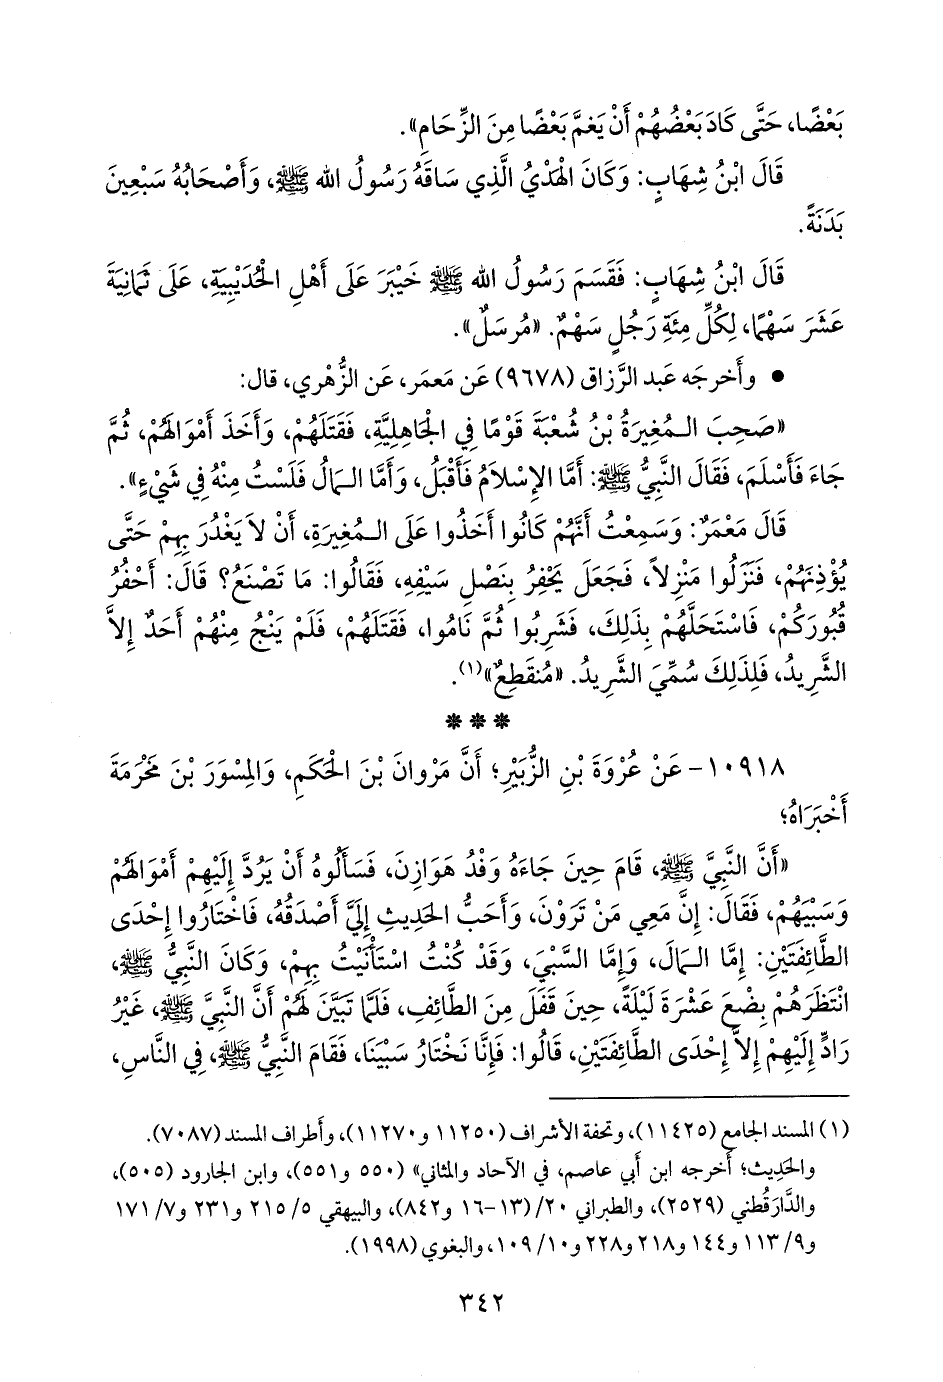 بَعْضًا، حَتَّى كَادَ بَعْضُهُمْ أَنْ يَغُمَّ بَعْضًا مِنَ الزِّحَامِ».
قَالَ ابْنُ شِهَابٍ: وَكَانَ الْهَدْيُ الَّذِي سَاقَهُ رَسُولُ الله ﷺ، وَأَصْحَابُهُ سَبْعِينَ
بَدَنَةً.
قَالَ ابْنُ شِهَابٍ: فَقَسَمَ رَسُولُ الله ﷺ خَيْبَرَ عَلَى أَهْلِ الْحُدَيْبِيَةِ، عَلَى ثَمَانِيَةَ
عَشَرَ سَهْمًا، لِكُلِّ مِئَةِ رَجُلٍ سَهْمٌ. «مُرسَلٌ».
• وأَخرجَه عَبد الرَّزاق (٩٦٧٨) عَن مَعمَر، عَن الزُّهْري، قال:
«صَحِبَ الـمُغِيرَةُ بْنُ شُعْبَةَ قَوْمًا فِي الْجَاهِلِيَّةِ، فَقَتَلَهُمْ، وَأَخَذَ أَمْوَالَهُمْ، ثُمَّ
جَاءَ فَأَسْلَمَ، فَقَالَ النَّبِيُّ ﷺ: أَمَّا الإِسْلَامُ فَأَقْبَلُ، وَأَمَّا الـمَالُ فَلَسْتُ مِنْهُ فِي شَيْءٍ».
قَالَ مَعْمَرٌ: وَسَمِعْتُ أَنَّهُمْ كَانُوا أَخَذُوا عَلَى الـمُغِيرَةِ، أَنْ لاَ يَغْدُرَ بِهِمْ حَتَّى
يُؤْذِنَهُمْ، فَنَزَلُوا مَنْزِلاً، فَجَعَلَ يَحْفِرُ بِنَصْلِ سَيْفِهِ، فَقَالُوا: مَا تَصْنَعُ؟ قَالَ: أَحْفُرُ
قُبُورَكُمْ، فَاسْتَحَلَّهُمْ بِذَلِكَ، فَشَرِبُوا ثُمَّ نَامُوا، فَقَتَلَهُمْ، فَلَمْ يَنْجُ مِنْهُمْ أَحَدٌ إِلاَّ
الشَّرِيدُ، فَلِذَلِكَ سُمِّيَ الشَّرِيدُ. «مُنقَطِعٌ»(١).
* * *
١٠٩١٨- عَنْ عُرْوَةَ بْنِ الزُّبَيْرِ؛ أَنَّ مَرْوَانَ بْنَ الْحَكَمِ، وَالمِسْوَرَ بْنَ مَخْرَمَةَ
أَخْبَرَاهُ؛
«أَنَّ النَّبِيَّ ﷺ، قَامَ حِينَ جَاءَهُ وَفْدُ هَوَازِنَ، فَسَأَلُوهُ أَنْ يَرُدَّ إِلَيْهِمْ أَمْوَالَهُمْ
وَسَبْيَهُمْ، فَقَالَ: إِنَّ مَعِي مَنْ تَرَوْنَ، وَأَحَبُّ الْحَدِيثِ إِلَيَّ أَصْدَقُهُ، فَاخْتَارُوا إِحْدَى
الطَّائِفَتَيْنِ: إِمَّا الـمَالَ، وَإِمَّا السَّبْيَ، وَقَدْ كُنْتُ اسْتَأْنَيْتُ بِهِمْ، وَكَانَ النَّبِيُّ ﷺ،
انْتَظَرَهُمْ بِضْعَ عَشْرَةَ لَيْلَةً، حِينَ قَفَلَ مِنَ الطَّائِفِ، فَلَمَّا تَبَيَّنَ لَهُمْ أَنَّ النَّبِيَّ ﷺ، غَيْرُ
رَادٍّ إِلَيْهِمْ إِلاَّ إِحْدَى الطَّائِفَتَيْنِ، قَالُوا: فَإِنَّا نَخْتَارُ سَبْيَنَا، فَقَامَ النَّبِيُّ ﷺ، فِي النَّاسِ،
(١) المسند الجامع (١١٤٢٥)، وتحفة الأشراف (١١٢٥٠ و١١٢٧٠)، وأطراف المسند (٧٠٨٧).
والحَدِيث؛ أَخرجه ابن أَبي عاصم، في الآحاد والمثاني» (٥٥٠ و٥٥١)، وابن الجارود (٥٠٥)،
والدَّارَقُطني (٢٥٢٩)، والطبراني ٢٠/ (١٣-١٦ و٨٤٢)، والبيهقي ٥/ ٢١٥ و٢٣١ و٧/ ١٧١
و٩/ ١١٣ و١٤٤ و٢١٨ و٢٢٨ و١٠/ ١٠٩، والبغوي (١٩٩٨).
٣٤٢